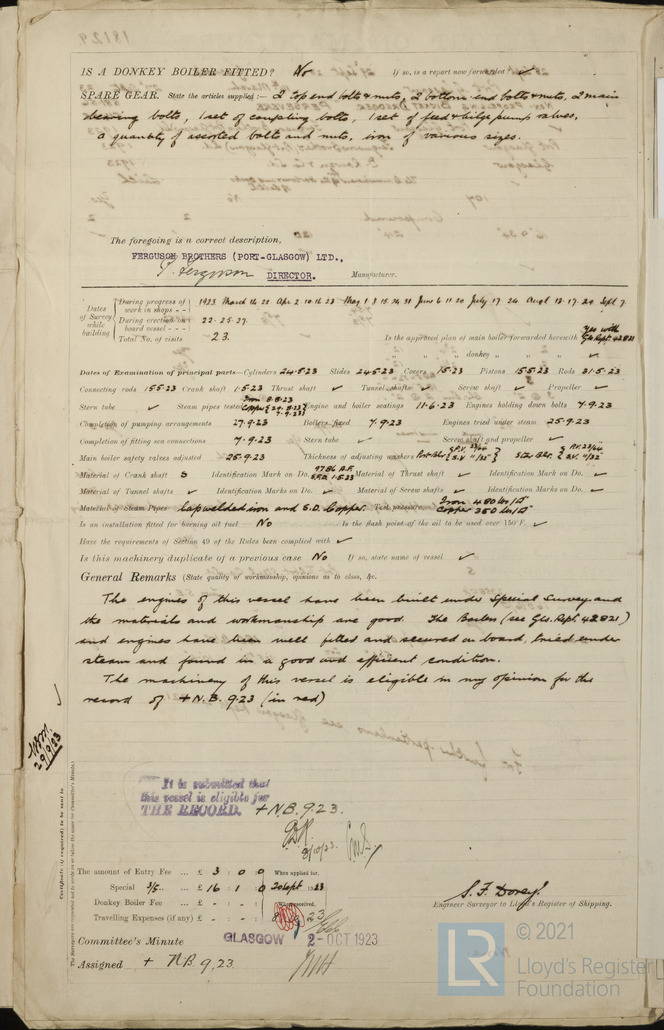 IS A DONKEY BOILER FITTED? No If so, is a report now forwarded? ✓
SPARE GEAR. State the articles supplied:— 2 top end bolts & nuts, 2 bottom end bolts & nuts, 2 main
bearing bolts, 1 set of coupling bolts, 1 set of feed & bilge pump valves,
a quantity of assorted bolts and nuts, iron of various sizes.
The foregoing is a correct description,
FERGUSON BROTHERS (PORT-GLASGOW) LTD.,
P. Ferguson DIRECTOR. Manufacturer.
Dates of Survey while building
During progress of work in shops - - 1923 March 16 22 Apr 2 10 16 23 May 1 8 15 24 31 June 6 11 20 July 17 24 Aug 8 17 29 Sept 7
During erection on board vessel - - - 22. 25. 27.
Total No. of visits 23. Is the approved plan of main boiler forwarded herewith Yes with Gls Rept. 42821
" " " donkey " " " ✓
Dates of Examination of principal parts—Cylinders 24.5.23 Slides 24.5.23 Covers 1.5.23 Pistons 15.5.23 Rods 31.5.23
Connecting rods 15.5.23 Crank shaft 1.5.23 Thrust shaft ✓ Tunnel shafts ✓ Screw shaft ✓ Propeller ✓
Stern tube ✓ Steam pipes tested Iron 8.8.23 Copper Engine and boiler seatings 11.6.23 Engines holding down bolts 7.9.23
Completion of pumping arrangements 27.9.23 Boilers fixed 7.9.23 Engines tried under steam 25.9.23
Completion of fitting sea connections 7.9.23 Stern tube ✓ Screw shaft and propeller ✓
Main boiler safety valves adjusted 25.9.23 Thickness of adjusting washers Port Blr
Material of Crank shaft S Identification Mark on Do. Material of Thrust shaft ✓ Identification Mark on Do. ✓
Material of Tunnel shafts ✓ Identification Marks on Do. ✓ Material of Screw shafts ✓ Identification Marks on Do. ✓
Material of Steam Pipes Lapwelded iron and S.D. Copper. Test pressure Iron 480 lbs/□" Copper
Is an installation fitted for burning oil fuel No Is the flash point of the oil to be used over 150°F. ✓
Have the requirements of Section 49 of the Rules been complied with ✓
Is this machinery duplicate of a previous case No If so, state name of vessel ✓
General Remarks (State quality of workmanship, opinions as to class, &c.
The engines of this vessel have been built under Special Survey and
the materials and workmanship are good. The Boilers (see Gls. Rept. 42821)
and engines have been well fitted and secured on board, tried under
steam and found in a good and efficient condition.
The machinery of this vessel is eligible in my opinion for the
record of + N.B. 9.23 (in red)
29/9/23
Certificate (if required) to be sent to
It is submitted that
this vessel is eligible for
THE RECORD. + N.B. 9.23.
3/10/23.
The amount of Entry Fee ... £ 3 : 0 : 0 When applied for,
Special 3/5.. ... £ 16 : 1 : 0
Donkey Boiler Fee ... £ - : - :
Travelling Expenses (if any) £ - : - :
S. F. Dorey.
Engineer Surveyor to Lloyd's Register of Shipping.
Committee's Minute GLASGOW 2-OCT 1923
Assigned + N.B. 9.23
LR © 2021
Lloyd's Register
Foundation